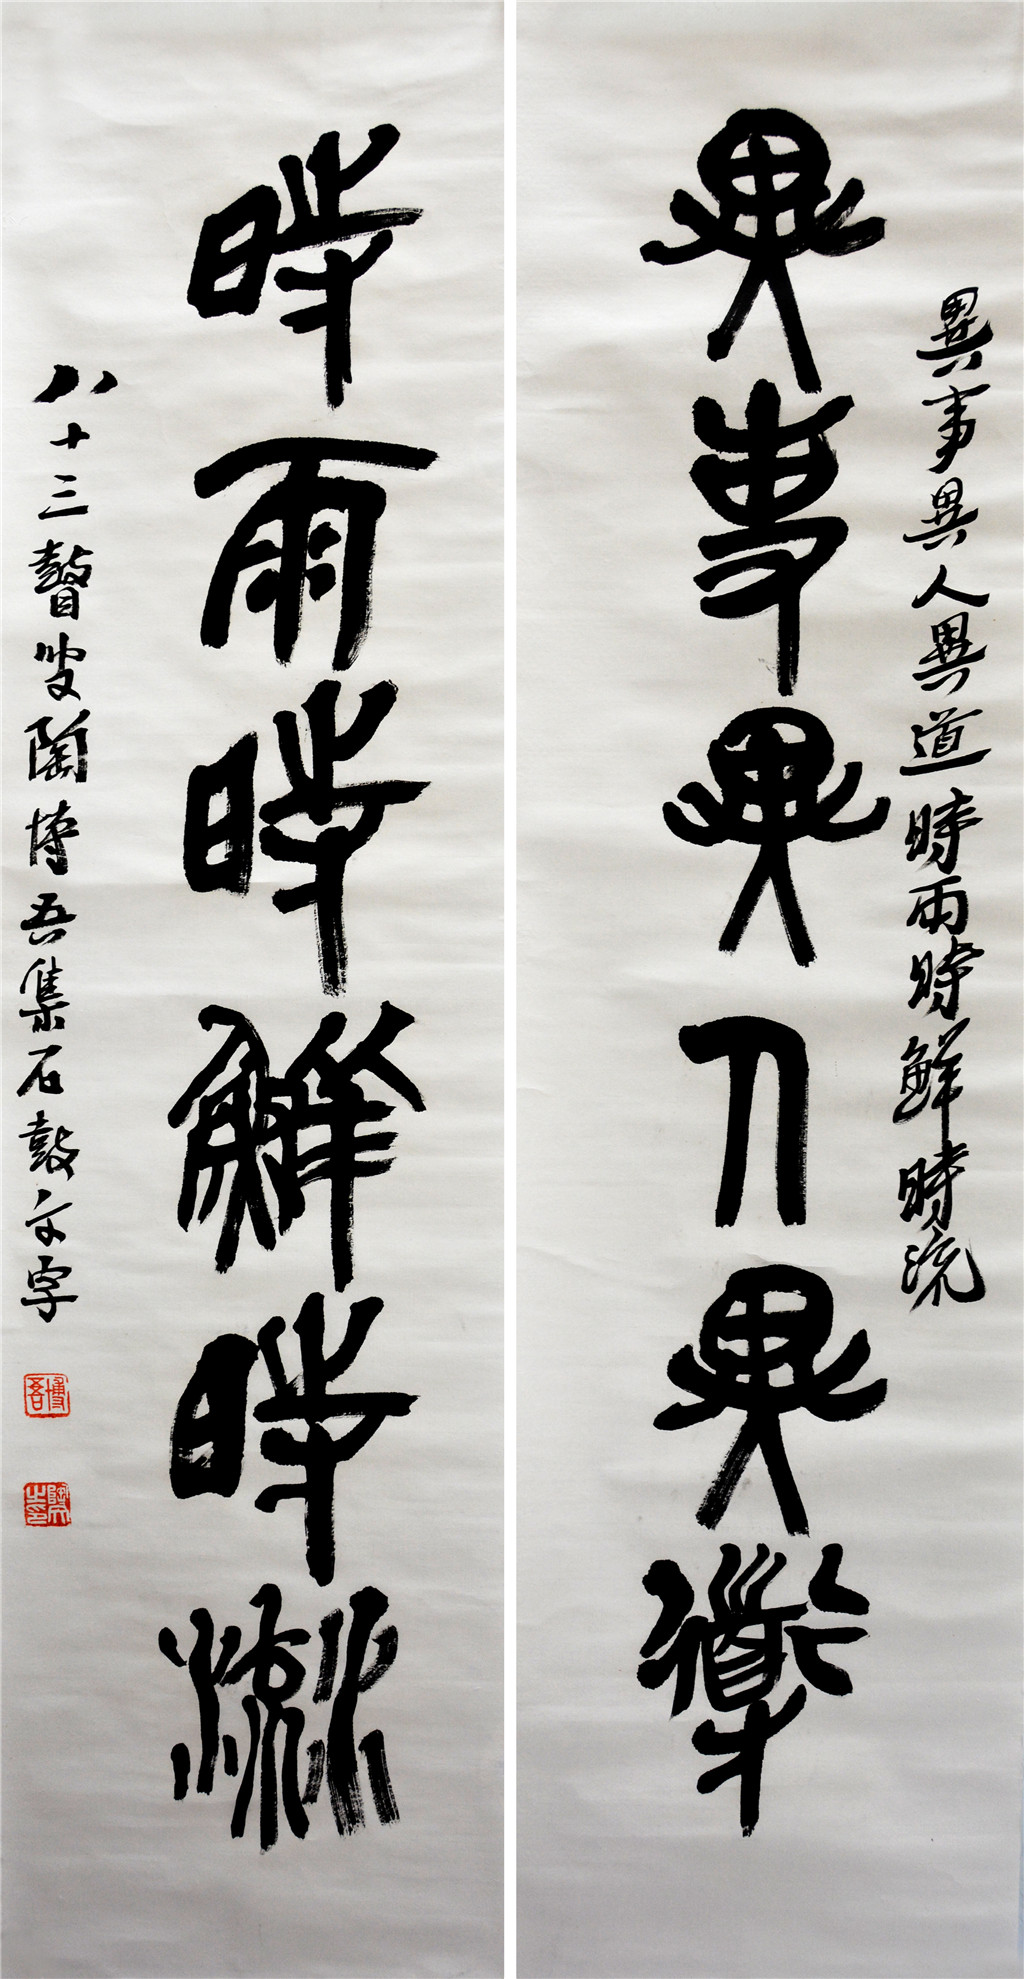 異事異人異道
異事異人異道時雨時鮮時流
時雨時鮮時流
八十三瞽叟陶博吾集石鼓文字
博吾
陶文之印